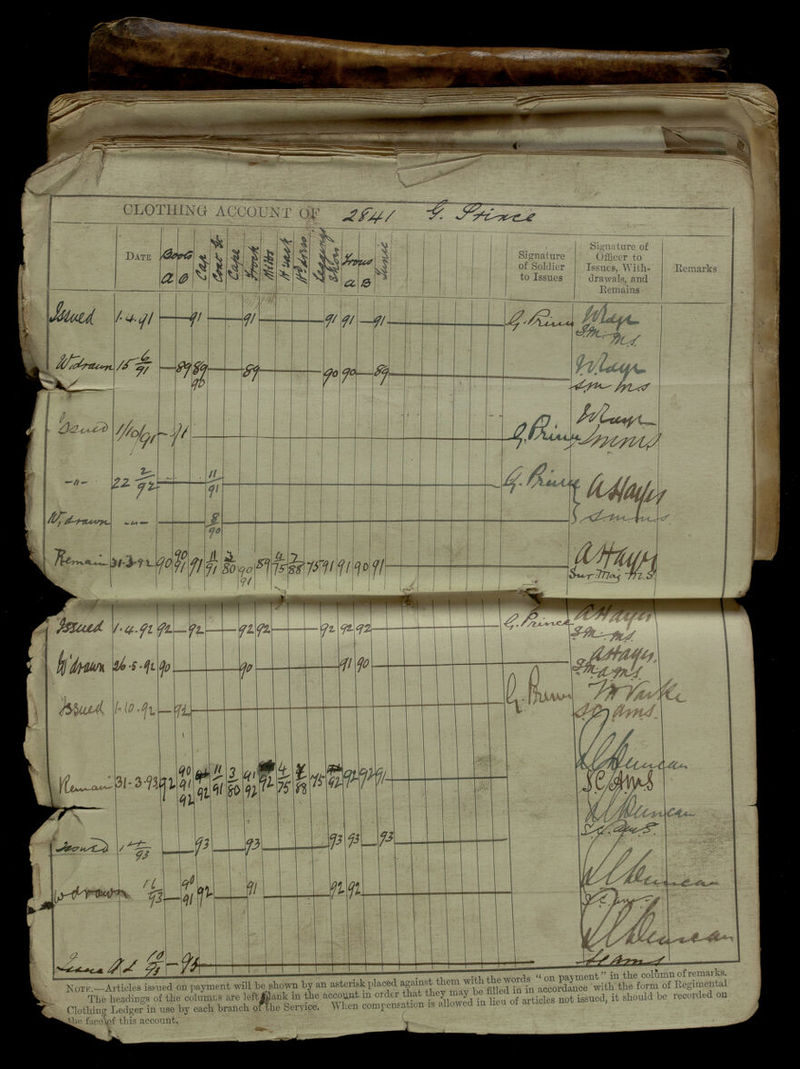 CLOTHING ACCOUNT OF 2841 G. Prince
DATE Boots A B Cap Coat Gt Cape Frock Mitts H'sack Leggings Trous A B Tunic Signature of Soldier to Issues Signature of Officer to Issues, Withdrawals, and Remains Remarks
Issued 1.4.91 91 91 91 91 91 G. Prince
S.M. M.S.
W'drawn 15 6/91 89 89 89 90 90 89
90 S.M. M.S
Issued 1/10/91 91 G. Prince
SM MS
-"- 22 2/92 11/91 G. Prince A Hayes
W'drawn -"- 8/90 SM MS
Remain 31-3-92 90 90/91 91 11/91 3/80 90/91 89 4/75 7/88 75 91 91 90 91 A Hayes
Sur. Maj M.S
Issued 1.4.92 92 92 92 92 92 92 92 G. Prince A Hayes
S.M. M.S.
W'drawn 26.5.92 90 90 91 90 A Hayes
Issued 1.10.92 92 G. Prince
S.C. A.M.S.
Remain 31-3-93 92 90/91/92 92 11/91 3/80 91/92 92 4/75 88 75 92 92 92 91 Duncan
S.C. A.M.S
Issued 1 4/93 93 93 93 93 93 Duncan
S.C. A.M.S.
W'drawn 11/93 90/91 92 91 92 92 Duncan
Issued 10/93 93 Duncan
S.C. A.M.S
NOTE.—Articles issued on payment will be shown by an asterisk placed against them with the words "on payment" in the column of remarks.
The headings of the columns are left blank in the account in order that they may be filled in in accordance with the form of Regimental
Clothing Ledger in use by each branch of the Service. When compensation is allowed in lieu of articles not issued, it should be recorded on
the face of this account.